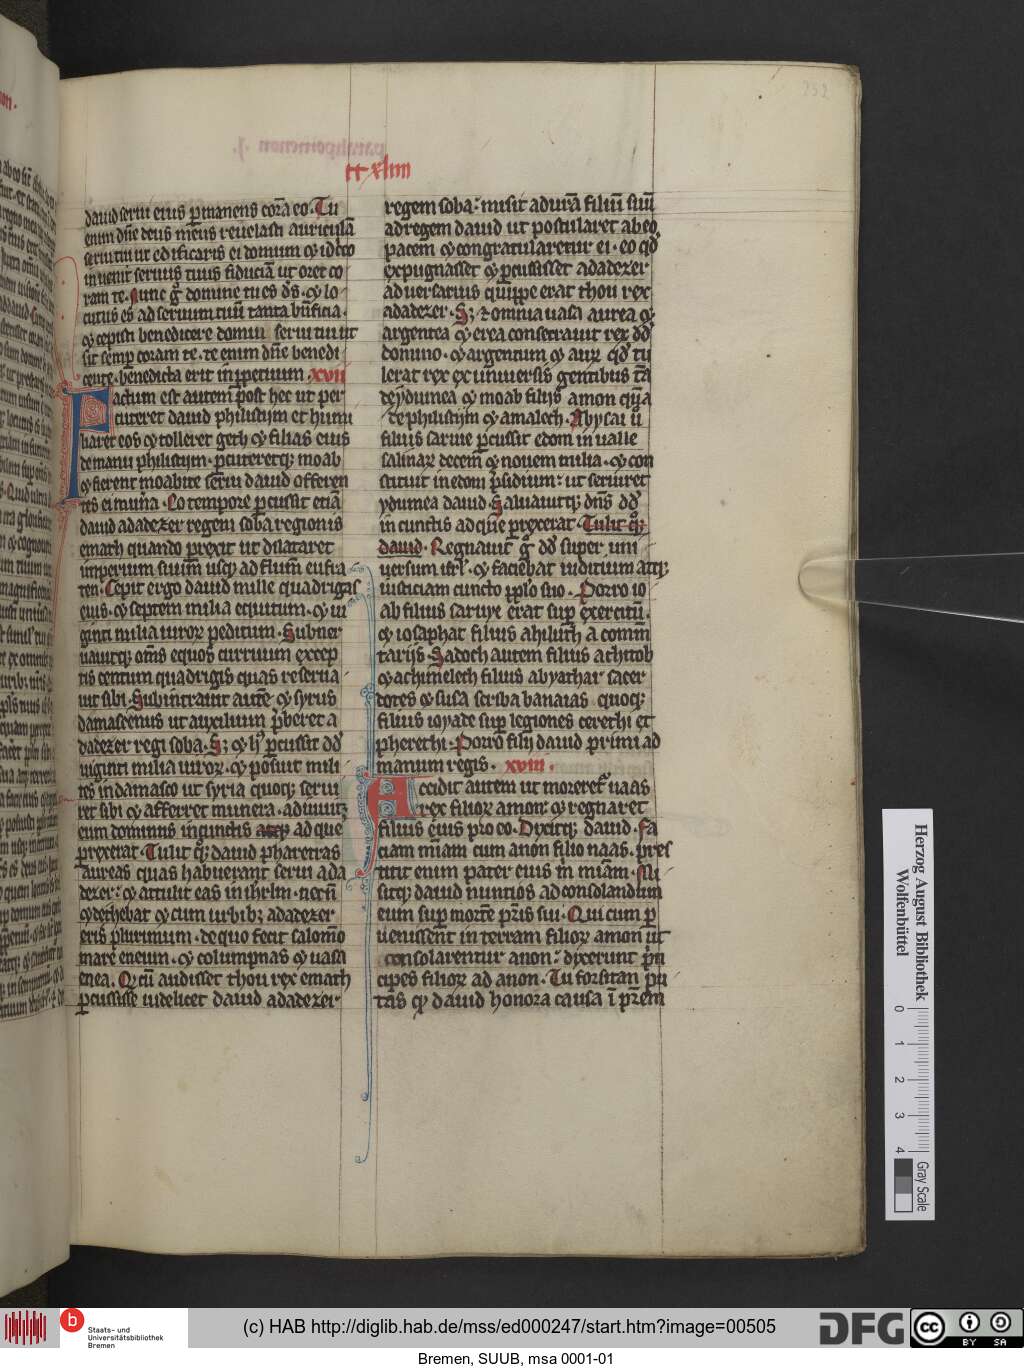 252
xliiii
dauid serui eius ꝑmanens corā eo. Tu
enim dn̄e deus meus reuelasti auriculā
serui tui ut edificaris ei domum ⁊ idcirco
inuenit seruus tuus fiduciā ut oret co
ram te. Nunc g̊ domine tu es ds̄. ⁊ lo
cutus es ad seruum tuū tanta bn̄ficia.
⁊ cepisti benedicere domui serui tui ut
sit semꝑ coram te. te enim dn̄e benedi
cente. benedicta erit in ꝑpetuum. xvii
Factum est autem post hec ut per
cuteret dauid philistijm et humi
liaret eos ⁊ tolleret geth ⁊ filias eius
de manu philistijm. ꝑcuteretqꝫ moab
⁊ fierent moabite serui dauid offeren
tes ei mun̄a. Eo tempore ꝑcussit etiā
dauid adadezer regem soba regionis
emath quando ꝑrexit ut dilataret
imperium suum usqꝫ ad flum̄ eufra
ten. Cepit ergo dauid mille quadrigas
eius. ⁊ septem milia equitum. ⁊ ui
ginti milia uiroꝝ peditum. Subner
uauitqꝫ om̄s equos curruum excep
tis centum quadrigis quas reserua
uit sibi. Subintrauit autē ⁊ syrus
damascenus ut auxilium p̄beret a
dadezer regi soba. Sꝫ ⁊ hꝰ ꝑcussit dd̄
uiginti milia uiroꝝ. ⁊ posuit mili
tes in damasco ut syria quoqꝫ serui
ret sibi ⁊ afferret munera. adiuuitqꝫ
eum dominus in cunctis ad que
ꝑrexerat. Tulit qꝫ dauid pharetras
aureas quas habuerant serui ada
dezer: ⁊ attulit eas in ihrlm. necn̄
⁊ de thebat ⁊ cum urbibꝫ adadezer
eris plurimum. de quo fecit salomō
mare eneum. ⁊ columpnas ⁊ uasa
enea. Qd̄ cū audisset thou rex emath
ꝑcussisse uidelicet dauid adadezer
regem soba: misit adurā filiū suū
ad regem dauid ut postularet ab eo
pacem ⁊ congratularetur ei. eo qd̄
expugnasset ⁊ ꝑcussisset adadezer
aduersarius quippe erat thou rex
adadezer. Sꝫ ⁊ omnia uasa aurea ⁊
argentea ⁊ erea consecrauit rex dd̄
domino. ⁊ argentum ⁊ auꝝ qd̄ tu
lerat rex ex uniuersis gentibus tā
de ydumea ⁊ moab filijs amon quā
de philistijm ⁊ amalech. Abysai ū
filius saruie ꝑcussit edom in ualle
salinaꝝ decem ⁊ nouem milia. ⁊ con
stituit in edom p̄sidium: ut seruiret
ydumea dauid. Saluauitqꝫ dn̄s dd̄
in cunctis ad que ꝑrexerat. Tulit qꝫ
dauid. Regnauit g̊ dd̄ super uni
uersum isrl̄. ⁊ faciebat iudicium atqꝫ
iusticiam cuncto pplo suo. Porro io
ab filius saruye erat suꝑ exercitū.
⁊ iosaphat filius ahiluth a comm̄
tarijs. Sadoch autem filius achitob
⁊ achimelech filius abyathar sacer
dotes ⁊ susa scriba banaias quoqꝫ
filius ioyade suꝑ legiones cerethi et
pherethi. Porro filij dauid primi ad
manum regis. xviii.
Accidit autem ut moreretᷣ naas
rex filioꝝ amon: ⁊ regnaret
filius eius pro eo. Dixitqꝫ dauid. Fa
ciam mīam cum anon filio naas. pres
titit enim pater eius m̄ miām. Mi
sitqꝫ dauid nuntios ad consolandum
eum suꝑ morte pr̄is sui. Qui cum ꝑ
uenissent in terram filioꝝ amon ut
consolarentur anon: dixerunt prin
cipes filioꝝ ad anon. Tu forsitan pu
tas ⁊ dauid honoris causa ī pr̄em
Herzog August Bibliothek
Wolfenbüttel
0 1 2 3 4
Gray Scale
b
Staats- und
Universitätsbibliothek
Bremen
(c) HAB http://diglib.hab.de/mss/ed000247/start.htm?image=00505
DFG
cc BY SA
Bremen, SUUB, msa 0001-01